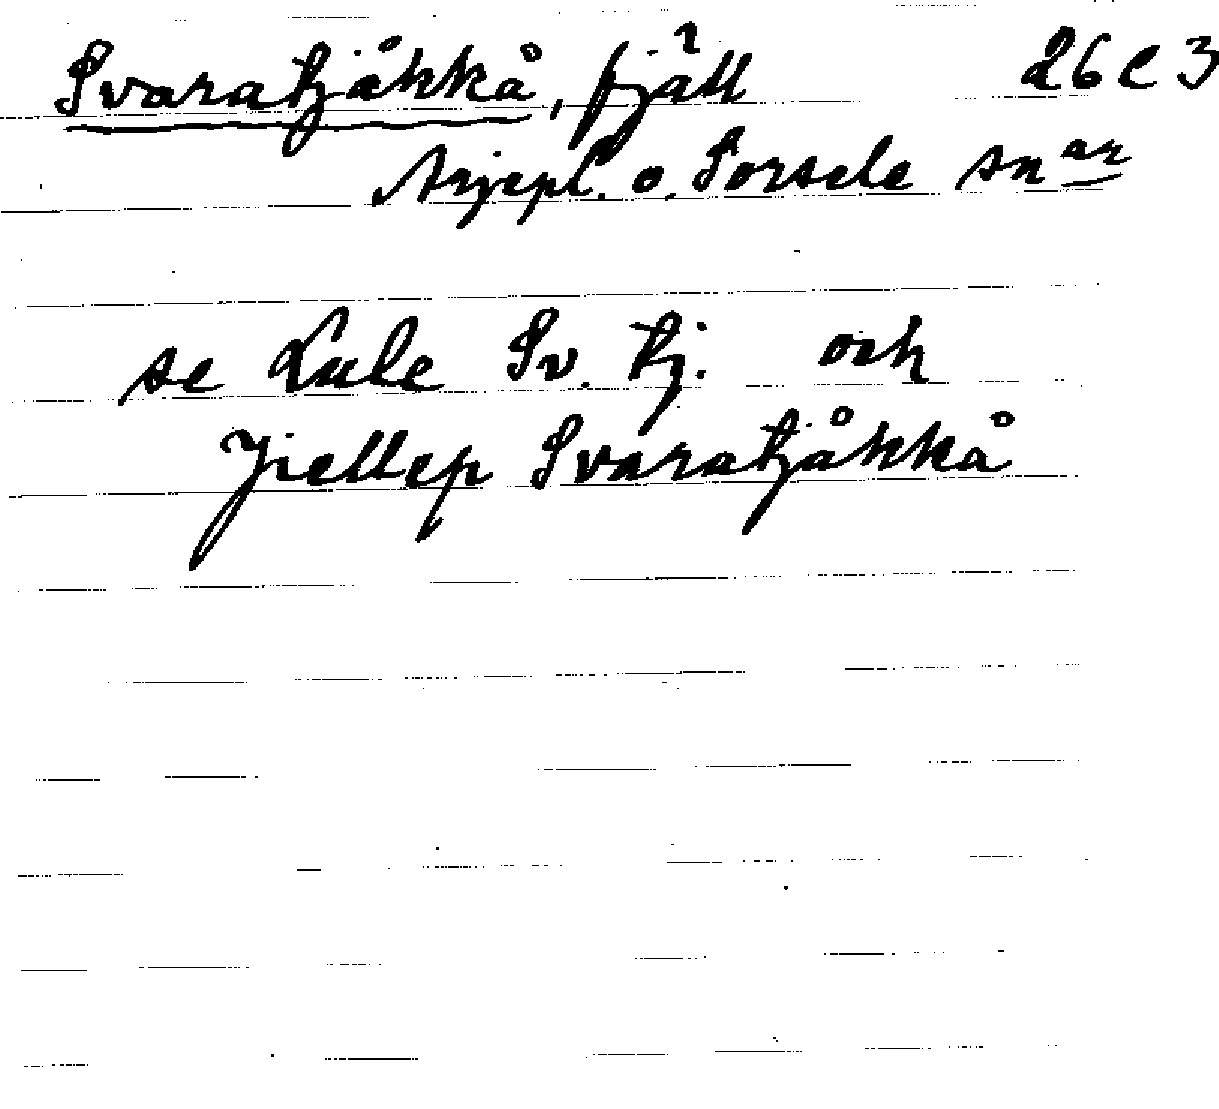 Svaratjåkkå, fjäll 26 C 3
Arjepl. o. Sorsele snar
se Lule Sv. tj. och
Jiellep Svaratjåkkå